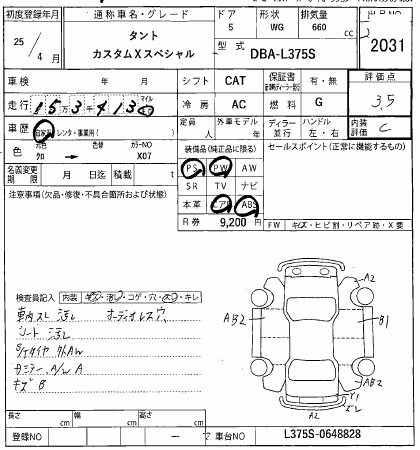 初度登録年月 通称車名・グレード ドア 形状 排気量
25/4月 タント カスタムXスペシャル 5 WG 660 cc 2031
型式 DBA-L375S
車検 年 月 シフト CAT 保証書 有・無 評価点
走行 15万3千413 マイル 冷房 AC 燃料 G 3.5
車歴 自家用・レンタ・事業用( ) 定員 人 外車モデル 年 ディーラー 並行 ハンドル 左・右 内装評価 C
色 元色 色替 カラーNO X07 装備品(純正品に限る) セールスポイント(正常に機能するもの)
名義変更期限 月 日迄 積載 t PS PW AW
注意事項(欠品・修復・不具合箇所および状態) SR TV ナビ
本革 エアB ABS
R券 9,200 円 FW キズ・ヒビ割・リペア跡・X要
検査員記入 内装 キズ・汚レ・コゲ・穴・スレ・キレ
車内スレ 汚レ オーディオレス
シート 汚レ
A2
AB2
B1
AB2
Y1
A2
長さ cm 幅 cm 高さ cm
登録NO 車台NO L375S-0648828